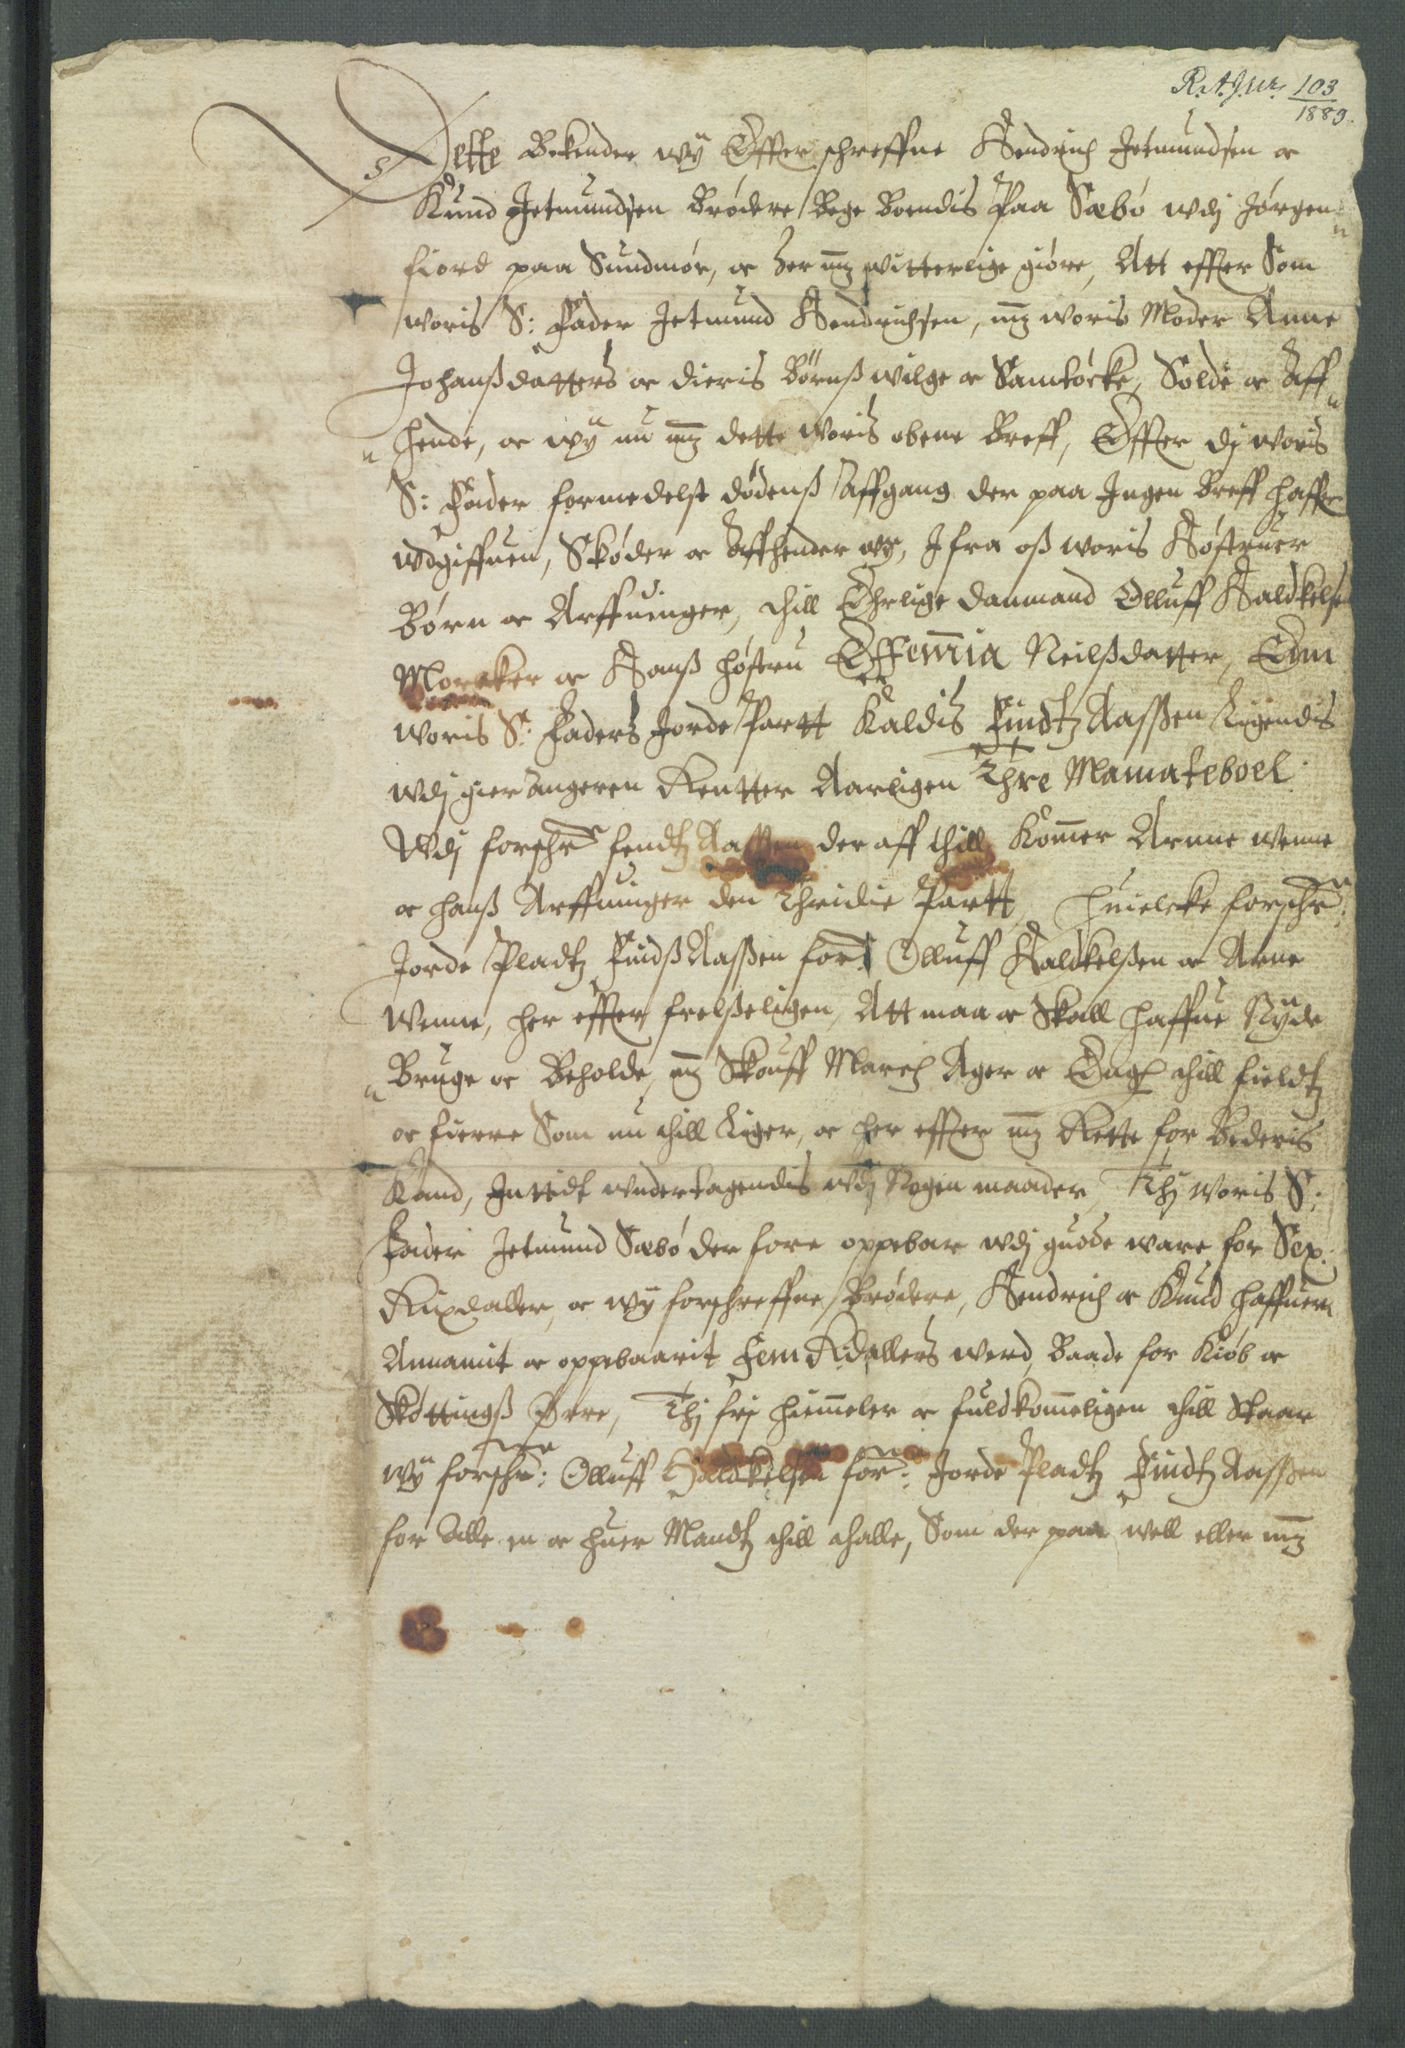 R.A. J.nr. 103
1889.
Dette Bekender wÿ Effter schreffne Hendrich Jetmundsen oc
Knud Jetmundsen Brødere Bege Boendis Paa Sæbø wdj Jørgen-
fiord paa Sundmør, oc her mz witterlige giøre, Att effter Som
woris S: Fader Jetmund Hendrichsen, mz woris Moder Anne
Johanßdatters oc dieris Børnß wilge oc Samtøcke, Solde oc Aff-
hende, oc wÿ nu mz dette Woris obene Breff, Effter dj woris
S: Fader formedelst dødenß Affgang der paa Ingen Breff haffr
wdgiffuen, Skøder oc Affhender wy, Ifra oß woris Høstruer
Børn oc Arffuinger, thill Ehrlige Danmand Olluff Haldkelsen
Morcker oc Hanß høstru Effemia Neilßdatter, Een
woris S: Faders Jorde Partt Kaldis Findtz Aassen Ligendis
wdj Gierangeren Rentter Aarligen Thre Mamateboel
Wdj forschr: findtz Aassen der aff thill Kommer Arnne wenne
oc hanß Arffuinger den Thridie Partt, Huielcke forschr:
Jorde Pladtz Findß Aassen for: Olluff Haldkelßen oc Arne
Wenne, her effter frelßeligen, Att maa oc Skall haffue Nÿde
Bruge oc Beholde, mz Skouff March Ager oc Eng thill fieldtz
oc fierre Som nu thill Liger, oc her effter mz Rette for Bederis
Kand, Inttidt undertagendis wdj Nogen maader, Thj Woris S:
Fader Jetmund Sæbø der fore oppebar wdj guode ware for Sex
Rixdaller, oc wÿ forschreffne Brødere, Hendrich oc Knud haffuer
Annamit oc oppebaarit Fem Rdallers werd, Baade for Kiøb oc
Skøttingß Øre, Thj frj hiemmeler oc fuldkommeligen thill Staar
wÿ forschr: Olluff Haldkelsen for: Jorde Pladtz Findtz Aassen
for Alle en oc huer Mandtz thill thalle, Som der paa well eller mz